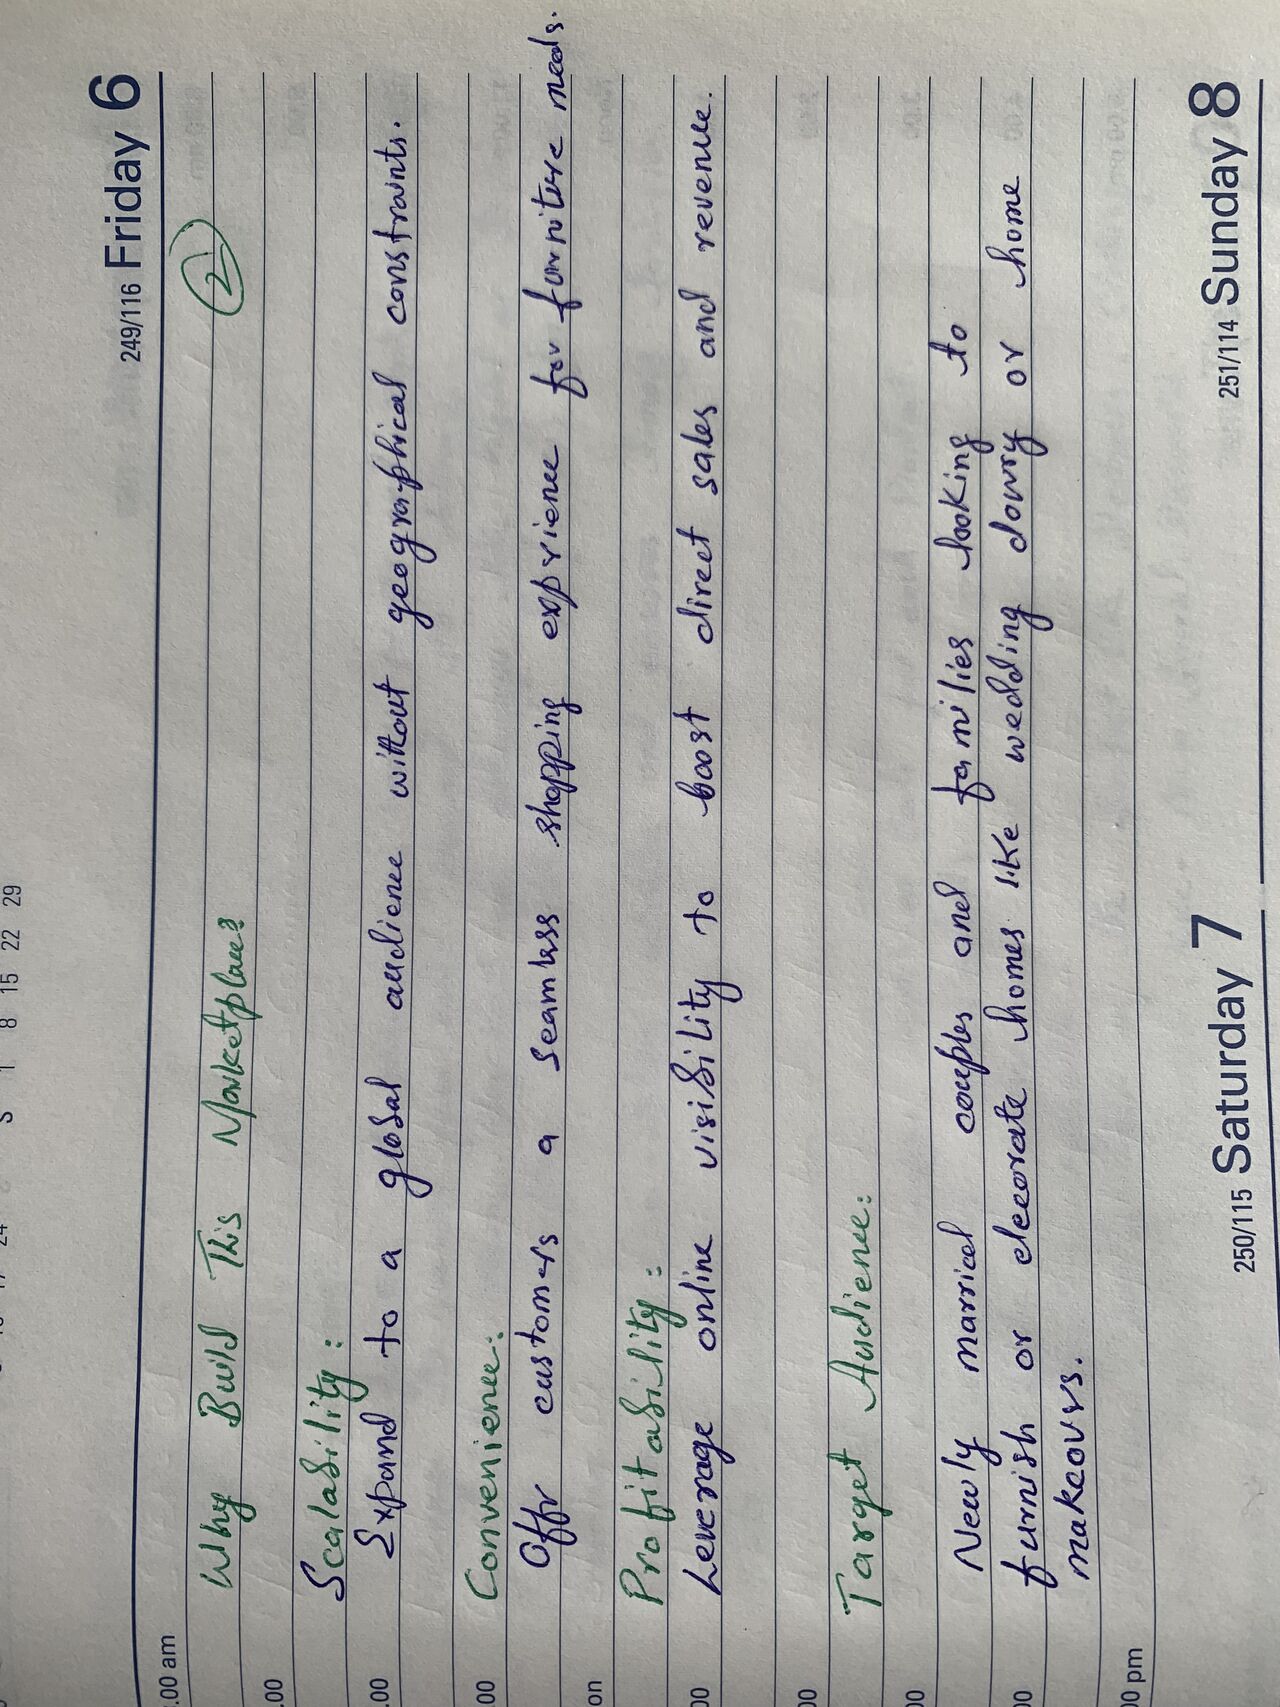 249/116 Friday 6
.00 am
Why Build This Marketplace?
2
.00
Scalability:
.00
Expand to a global audience without geographical constraints.
.00
Convenience:
Offr customers a seamless shopping exprience for furniture needs.
on
Profitability:
00
Leverage online visibility to boost direct sales and revenue.
00
Target Audience:
00
Newly married couples and families looking to
00
furnish or decorate homes like wedding dowry or home
makeovrs.
0 pm
250/115 Saturday 7
251/114 Sunday 8
S 1 8 15 22 29